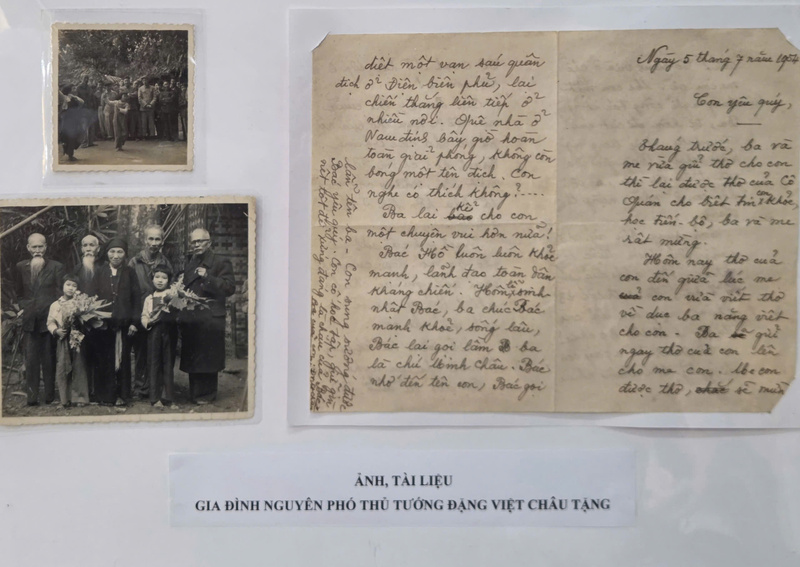 diệt một vạn sáu quân
địch ở Điện biên phủ, lại
chiến thắng liên tiếp ở
nhiều nơi. Quê nhà ở
Nam định bây giờ hoàn
toàn giải phóng, không còn
bóng một tên địch. Con
nghe có thích không?....
Ba lại kể cho con
một chuyện vui hơn nữa!
Bác Hồ luôn luôn khỏe
mạnh, lãnh đạo toàn dân
kháng chiến. Hôm sinh
nhật Bác, ba chúc Bác
mạnh khoẻ, sống lâu,
Bác lại gọi lầm ba
là chú Minh Châu. Bác
nhớ đến tên con, Bác gọi
lần tên ba. Con sung sướng được
Bác yêu quý. Con cố học tập, giữ gìn
nết tốt để xứng đáng là cháu của Bác
Ngày 5 tháng 7 năm 1954
Con yêu quý,
Tháng trước, ba và
mẹ vừa gửi thơ cho con
thì lại được thơ của Cô
Quán cho biết tin con khỏe,
học tiến bộ, ba và mẹ
rất mừng.
Hôm nay thơ của
con đến giữa lúc mẹ
con vừa viết thơ
về dục ba năng viết
cho con. Ba gửi
ngay thơ của con lên
cho mẹ con. Mẹ con
được thơ, chắc sẽ mừng
ẢNH, TÀI LIỆU
GIA ĐÌNH NGUYÊN PHÓ THỦ TƯỚNG ĐẶNG VIỆT CHÂU TẶNG